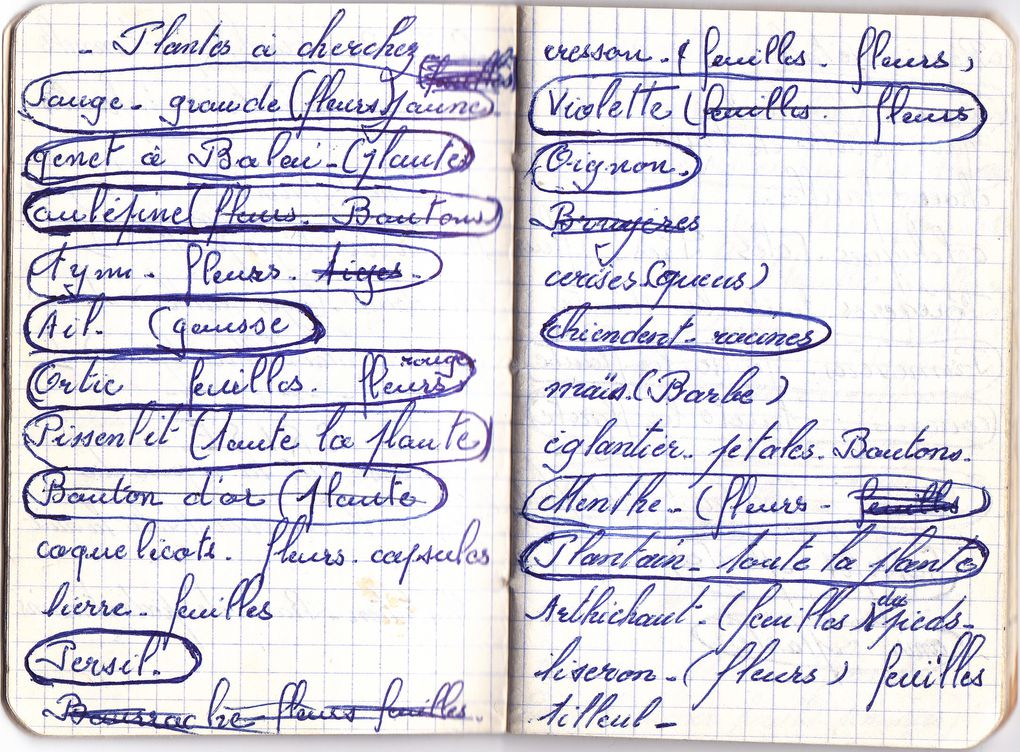 - Plantes à cherchez
Sauge - grande (fleurs) jaune.
genet à Balai - (plante)
aubépine (fleurs. Boutons)
tym - fleurs. tiges.
Ail. (gousse)
Ortie feuilles. fleurs rouge
Pissenlit (toute la plante
Bouton d'or (plante
coquelicots. fleurs. capsules
lierre - feuilles
Persil.
Bourrache - fleurs feuilles.
cresson - (feuilles. fleurs)
Violette (feuilles. fleurs
Oignon.
Bruyères
cerises (queus)
chiendent - racines
maïs. (Barbe)
églantier - pétales. Boutons.
Menthe - (fleurs - feuilles
Plantain - toute la plante
Arthichaut - (feuilles) des pieds -
liseron - (fleurs) feuilles
tilleul -